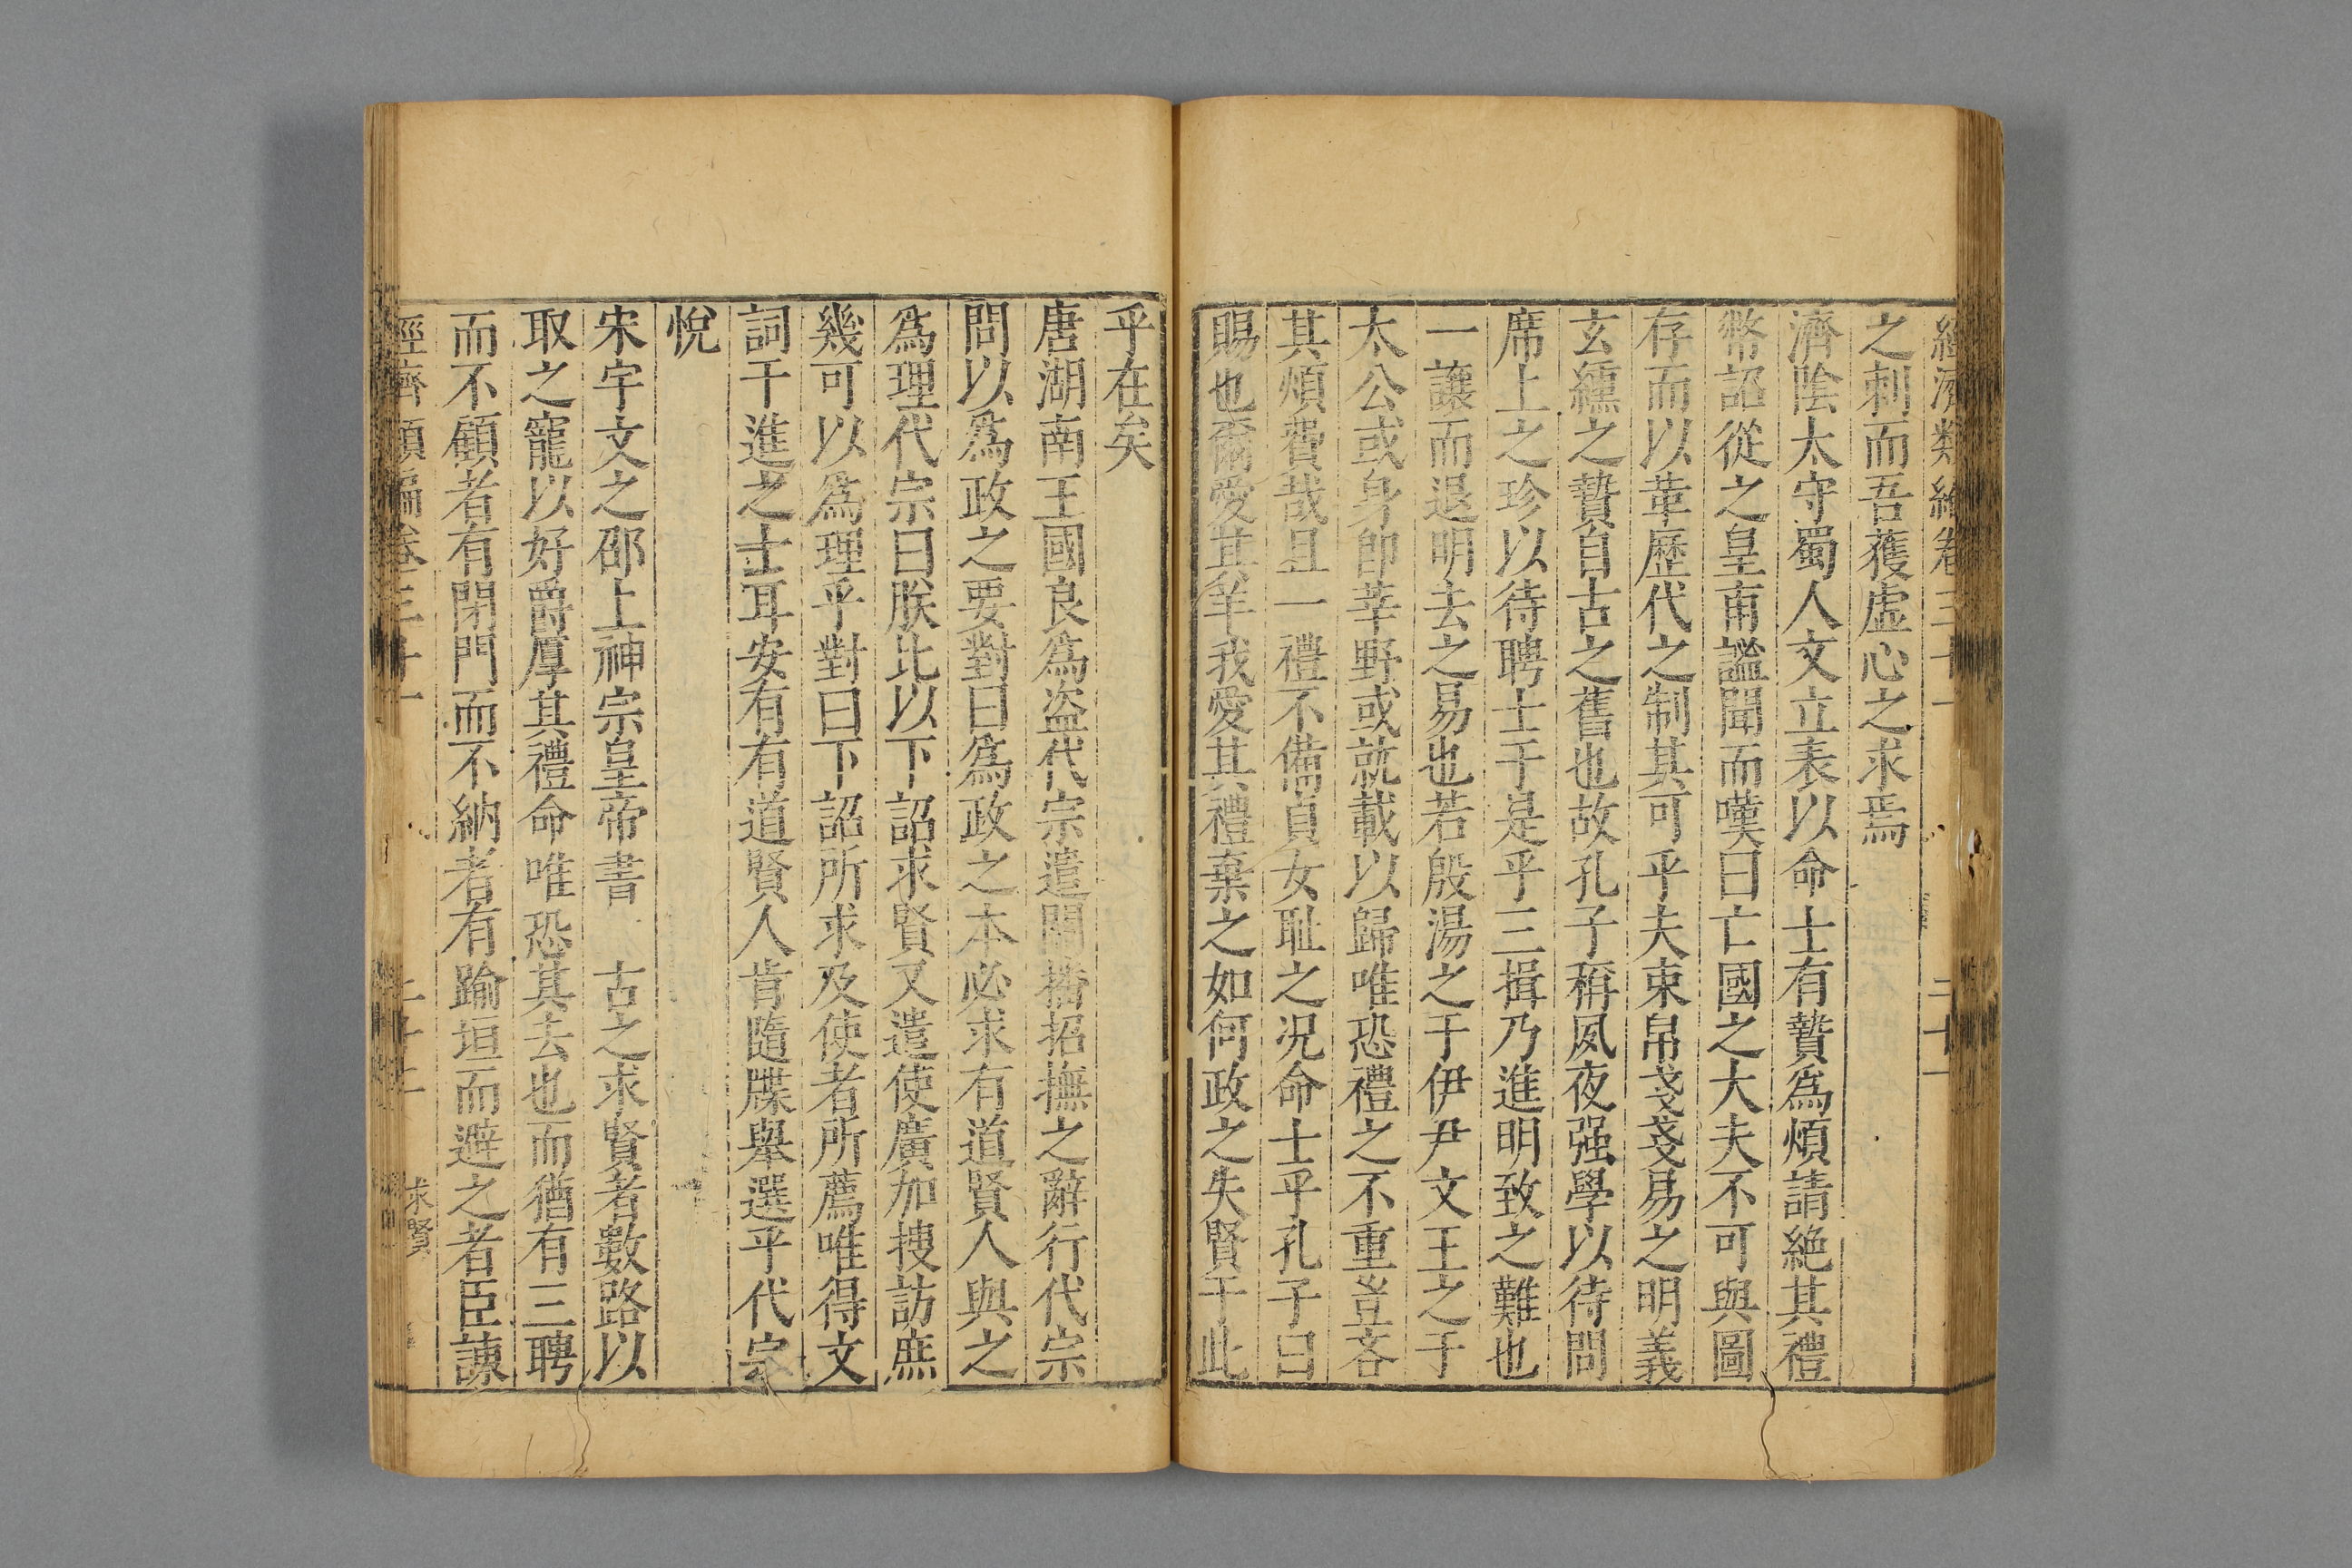 經濟類編卷三十一 二十一
之刺而吾獲虛心之求焉
濟陰太守蜀人文立表以命士有贄爲煩請絕其禮
幣詔從之皇甫謐聞而嘆曰亡國之大夫不可與圖
存而以革歷代之制其可乎夫束帛戔戔易之明義
玄纁之贄自古之舊也故孔子稱夙夜强學以待問
席上之珍以待聘士于是乎三揖乃進明致之難也
一讓而退明去之易也若殷湯之于伊尹文王之于
太公或身卽莘野或就載以歸唯恐禮之不重豈吝
其煩費哉且一禮不備貞女耻之况命士乎孔子曰
賜也爾愛其羊我愛其禮棄之如何政之失賢于此
乎在矣
唐湖南王國良爲盗代宗遣關播招撫之辭行代宗
問以爲政之要對曰爲政之本必求有道賢人與之
爲理代宗曰朕比以下詔求賢又遣使廣加搜訪庶
幾可以爲理乎對曰下詔所求及使者所薦唯得文
詞干進之士耳安有有道賢人肯隨牒舉選乎代宗
悅
宋宇文之邵上神宗皇帝書 古之求賢者數路以
取之寵以好爵厚其禮命唯恐其去也而猶有三聘
而不顧者有閉門而不納者有踰垣而避之者臣諫
經濟類編卷三十一 二十二 求賢